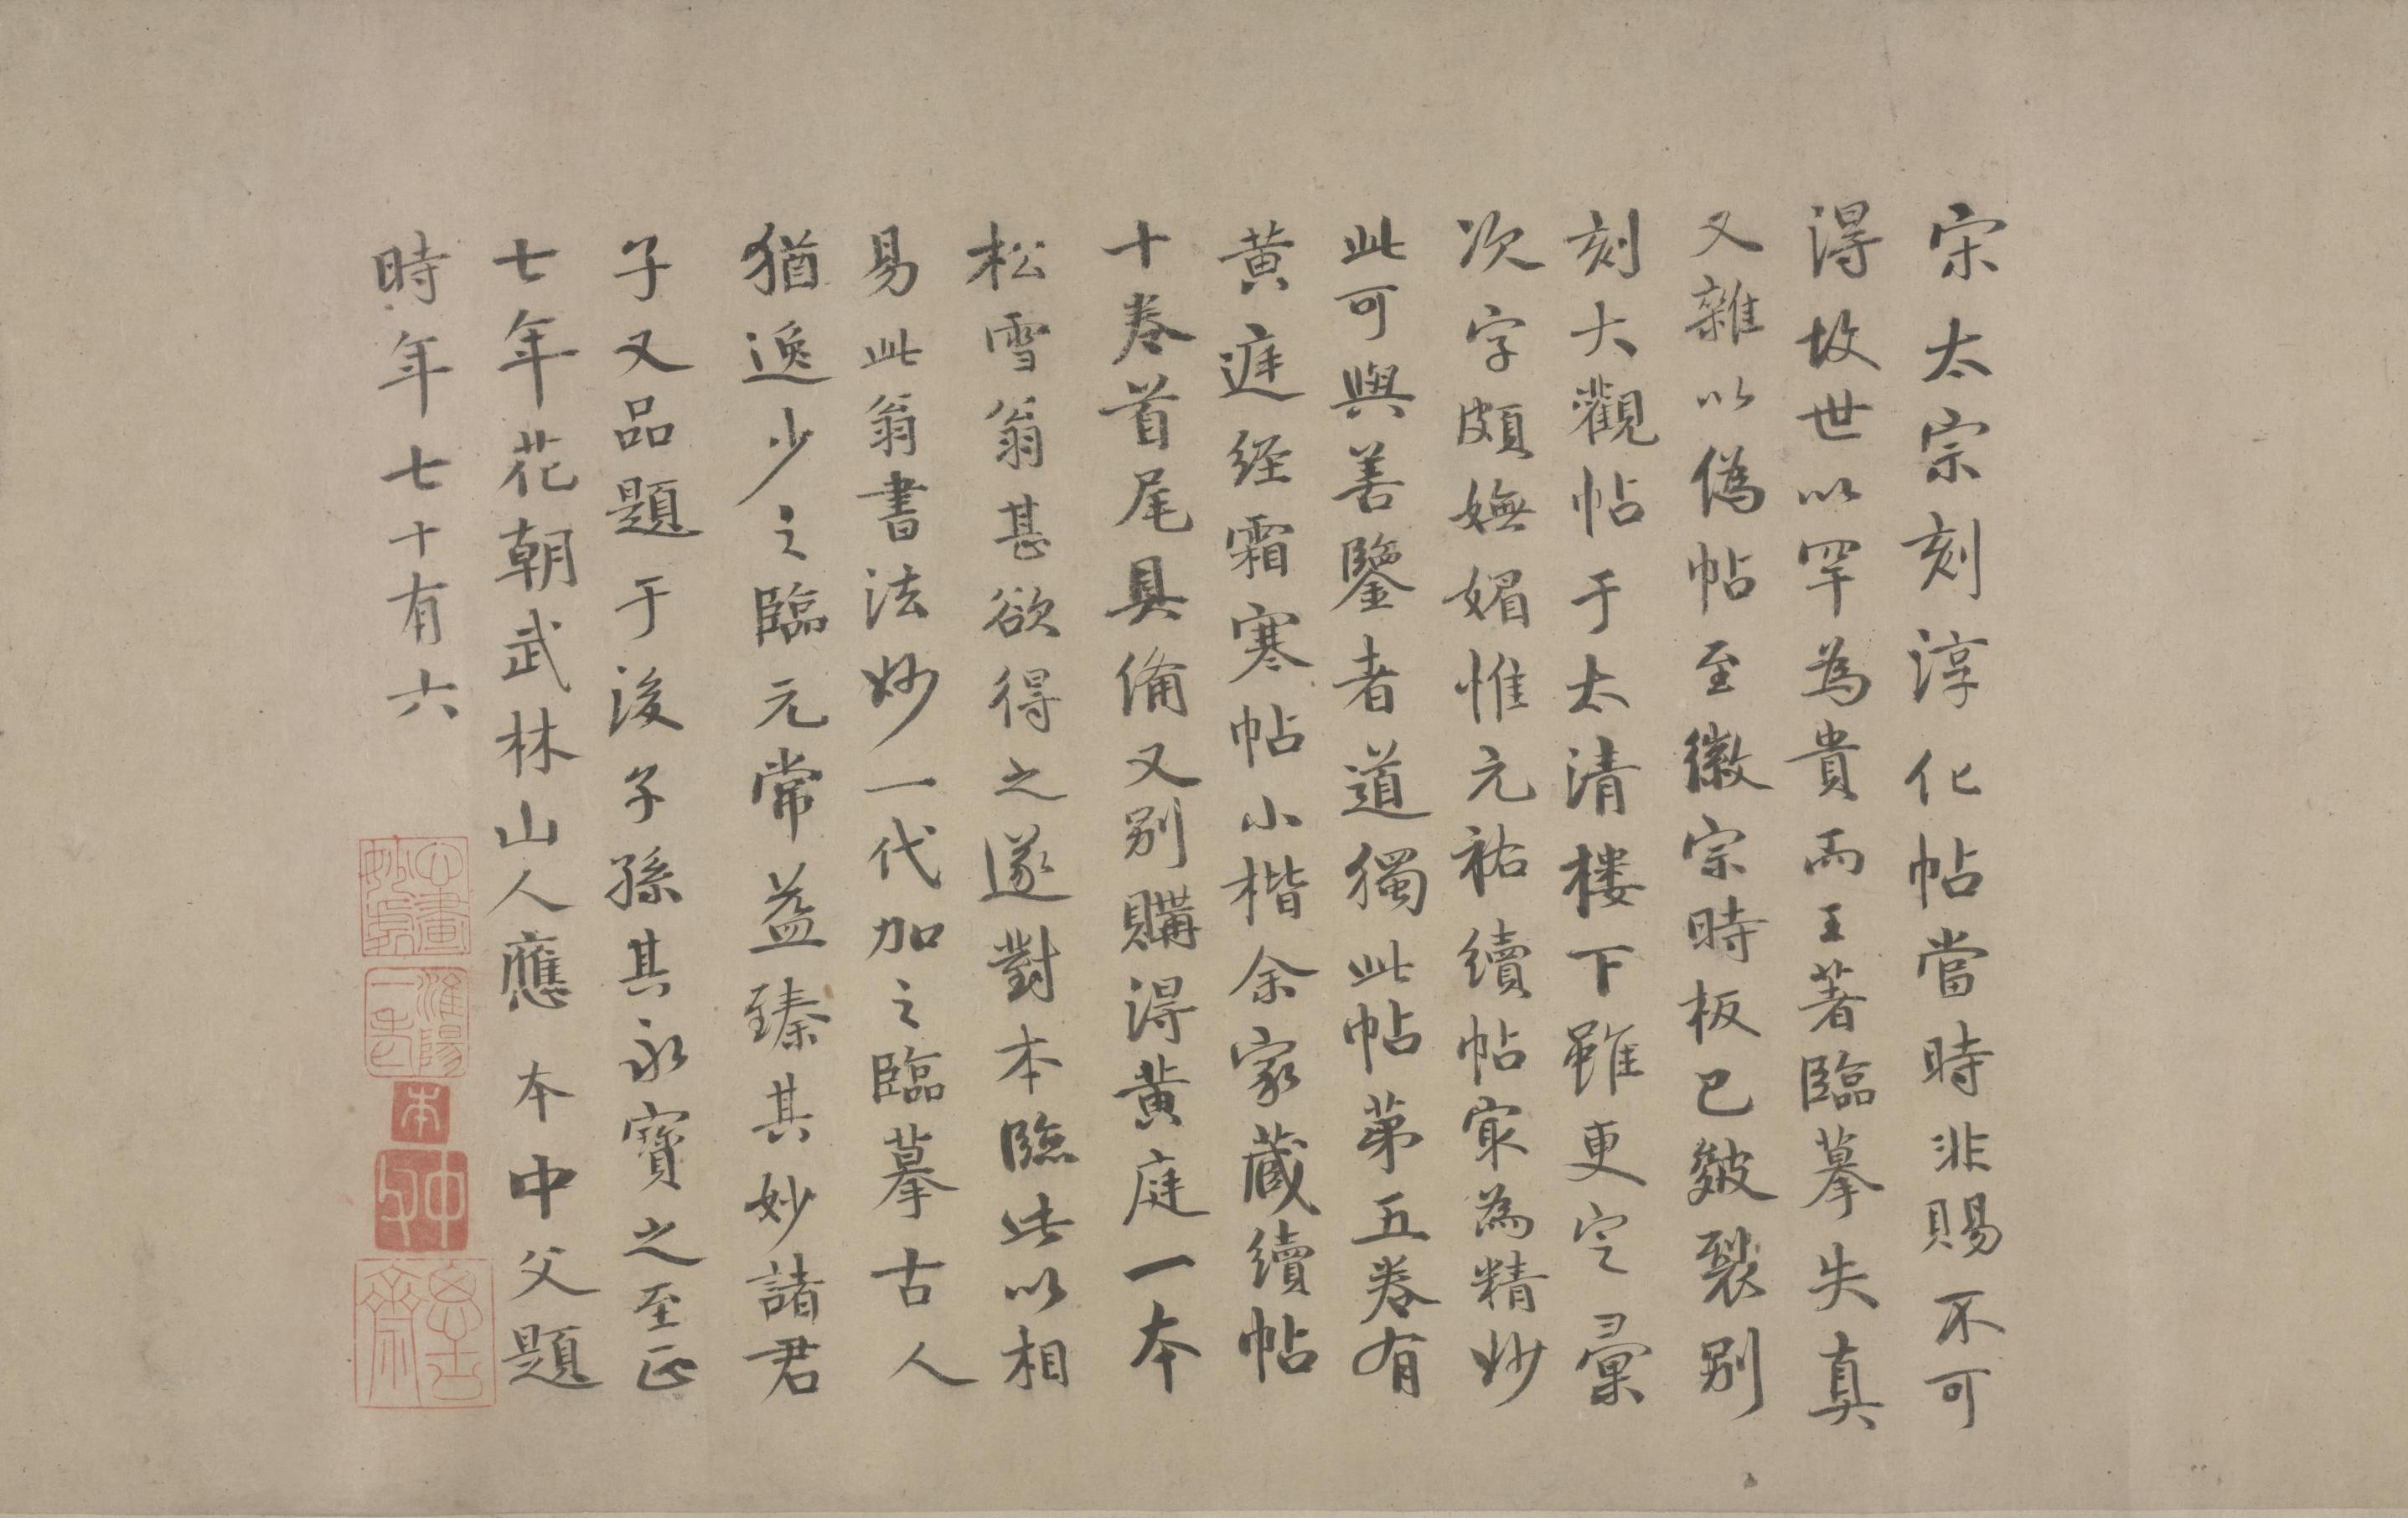 宋太宗刻淳化帖當時非賜不可
得故世以罕為貴而王著臨摹失真
又雜以偽帖至徽宗時板已皴裂別
刻大觀帖于太清楼下雖更定彙
次字頗嫵媚惟元祐續帖㝡為精妙
此可與善鑒者道獨此帖苐五卷有
黃庭经霜寒帖小楷余家藏續帖
十卷首尾具俻又别購得黃庭一本
松雪翁甚欲得之遂對本臨此以相
易此翁書法妙一代加之臨摹古人
猶逸少之臨元常益臻其妙諸君
子又品題于後子孫其永寶之至正
七年花朝武林山人應本中父題
時年七十有六
淮陽
本
中父